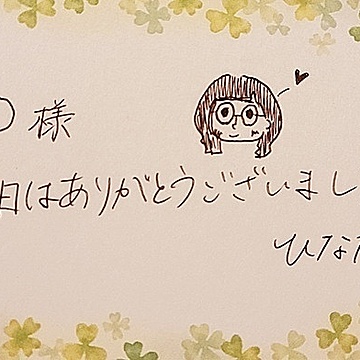 〇様
日はありがとうございまし
ひな